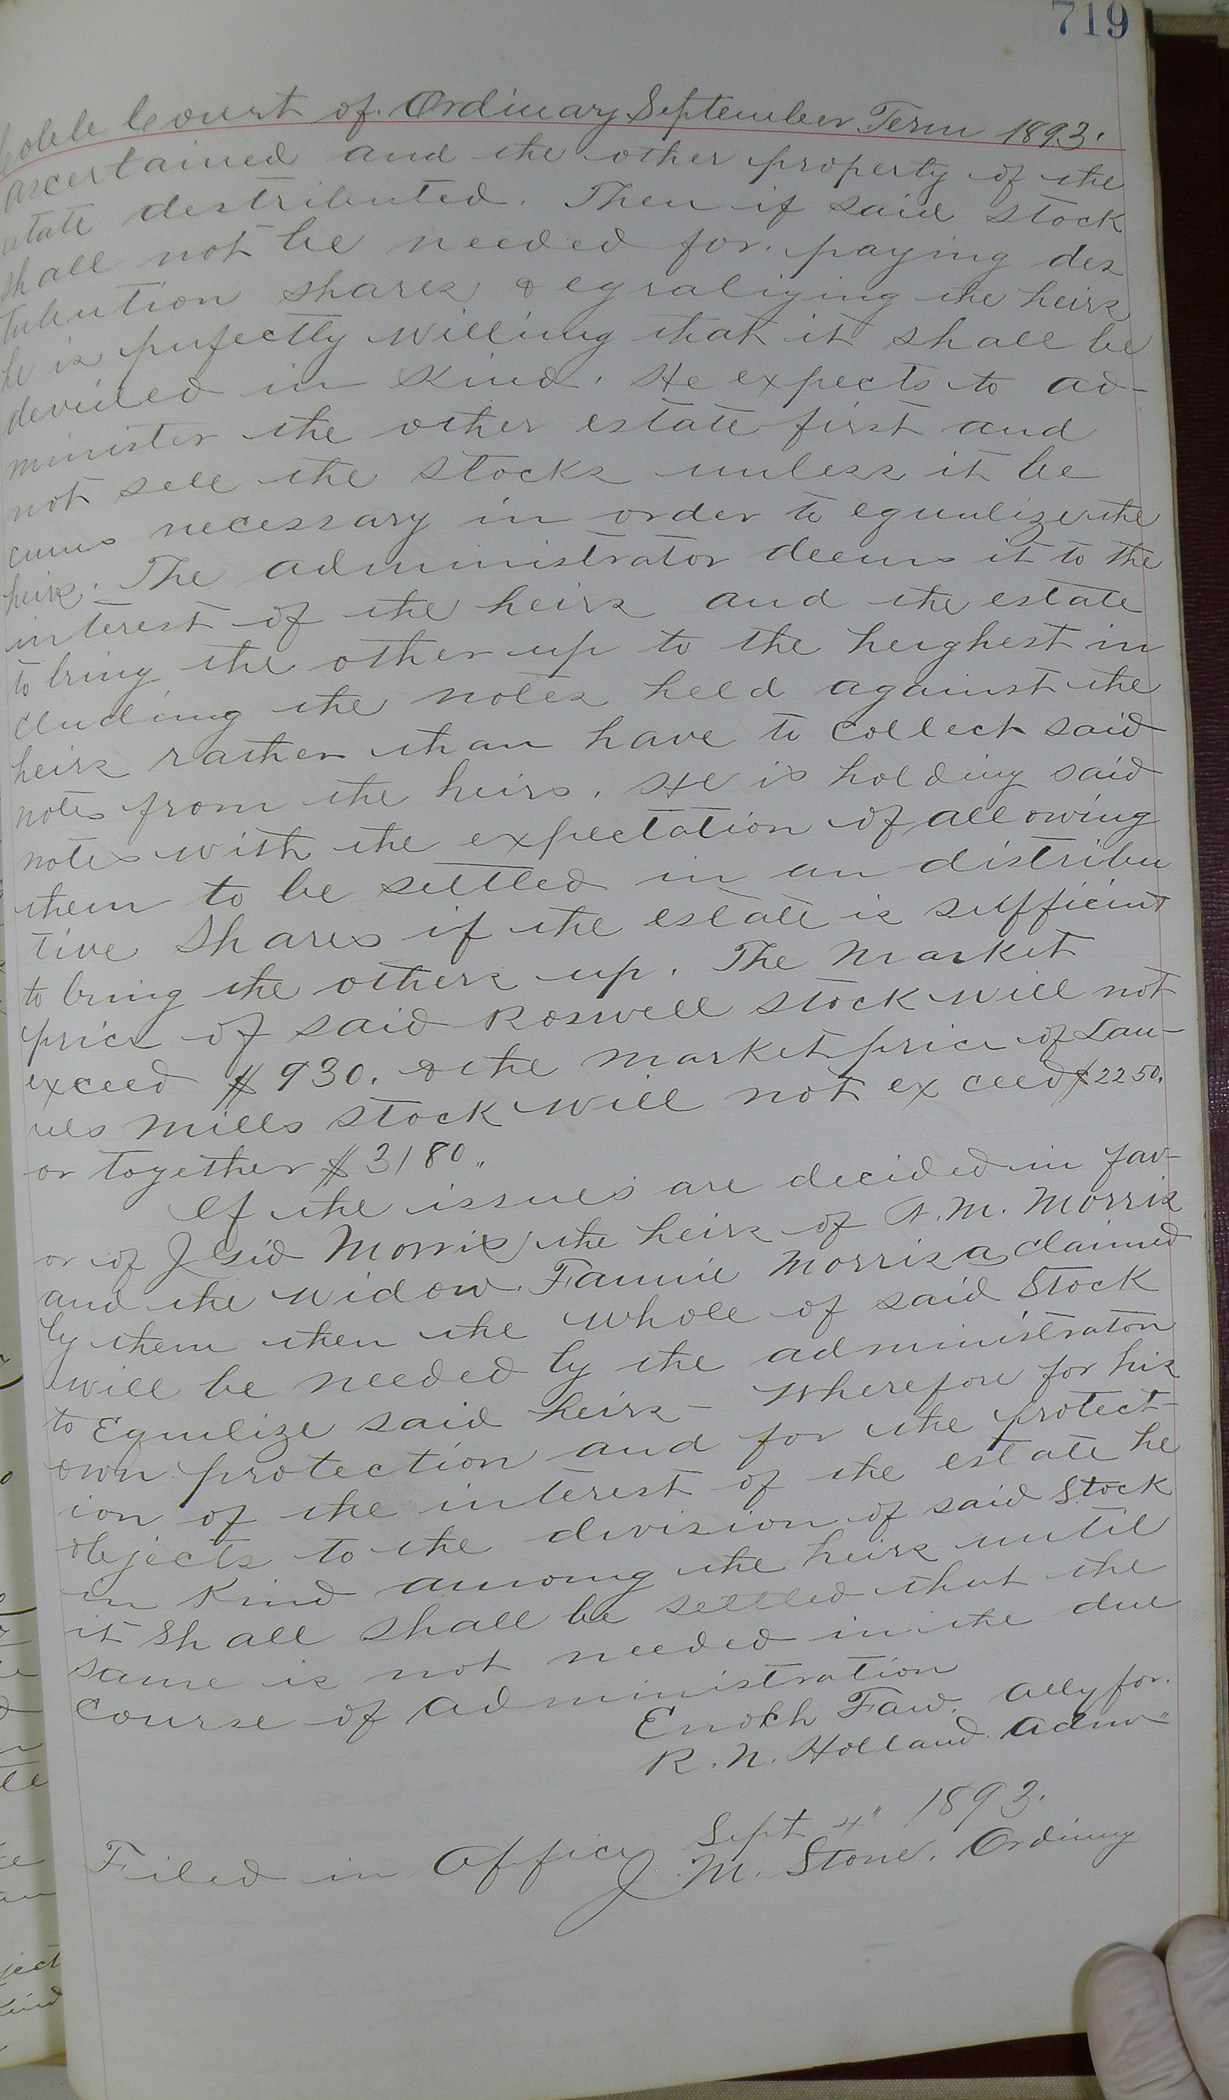 719
Cobb Court of Ordinary September Term 1893.
ascertained and the other property of the
estate destributed. Then if said stock
shall not be needed for paying des
tribution shares & eqraliging the heirs
he is perfectly willing that it shall be
devided in Kind. He expects to ad-
minister the other estate first and
not sell the stocks unless it be
cums necessary in order to equalize the
heirs. The administrator deems it to the
interest of the heirs and the estate
to bring the other up to the heighest in
cluding the notes held against the
heirs rather than have to collect said
notes from the heirs. He is holding said
notes with the expectation of allowing
them to be settled in an distribu
tive Shares if the estate is sufficient
to bring the others up. The Market
price of said Roswell stock will not
exceed $930. & the market price of Lau-
rels Mills stock will not exceed $2250.
or together $3180.,
If the issues are decided in fav-
or of J Sid Morris, the heirs of A. M. Morris
and the Widow Fannie Morris a claimed
by them then the whole of said Stock
will be needed by the administrator
to Equilize said heirs - Wherefore for his
own protection and for the protect-
ion of the interest of the estate he
objects to the division of said Stock
in Kind among the heirs until
it Shall shall be settled that the
same is not needed in the due
course of administration
Enoch Faw. Atty for.
R. N. Holland Admr"
Filed in Office Sept 4" 1893.
J. M. Stone. Ordinary